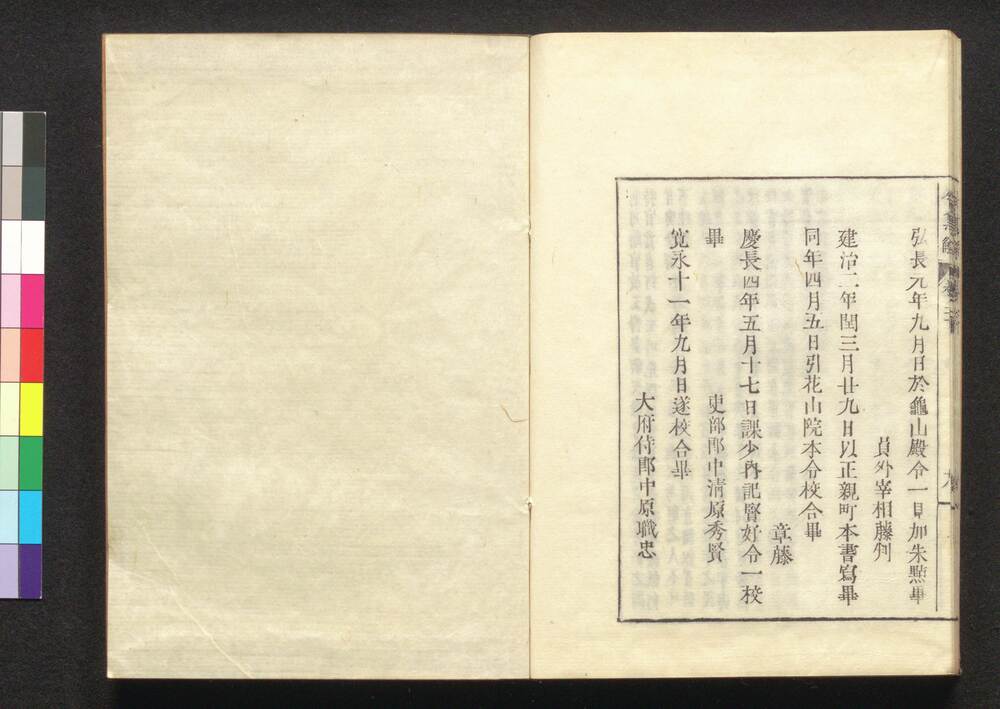 弘長元年九月日於龜山殿令一見加朱點畢
員外宰相藤判
建治二年閏三月廿九日以正親町本書寫畢
同年四月五日引花山院本令校合畢
章藤
慶長四年五月十七日課少内記賢好令一校
畢
吏部郎中清原秀賢
寛永十一年九月日遂校合畢
大府侍郎中原職忠